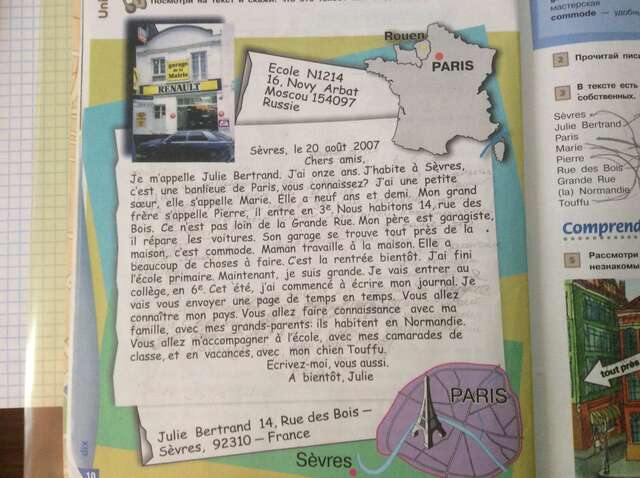 Uni
Посмотри на текст и скажи, что это такое.
garage
de la
Mairie
RENAULT
Ecole N1214
16, Novy Arbat
Moscou 154097
Russie
Rouen
PARIS
Sèvres, le 20 août 2007
Chers amis,
Je m'appelle Julie Bertrand. J'ai onze ans. J'habite à Sèvres,
c'est une banlieue de Paris, vous connaissez? J'ai une petite
sœur, elle s'appelle Marie. Elle a neuf ans et demi. Mon grand
frère s'appelle Pierre, il entre en 3e. Nous habitons 14, rue des
Bois. Ce n'est pas loin de la Grande Rue. Mon père est garagiste,
il répare les voitures. Son garage se trouve tout près de la
maison, c'est commode. Maman travaille à la maison. Elle a
beaucoup de choses à faire. C'est la rentrée bientôt. J'ai fini
l'école primaire. Maintenant, je suis grande. Je vais entrer au
collège, en 6e. Cet été, j'ai commencé à écrire mon journal. Je
vais vous envoyer une page de temps en temps. Vous allez
connaître mon pays. Vous allez faire connaissance avec ma
famille, avec mes grands-parents: ils habitent en Normandie.
Vous allez m'accompagner à l'école, avec mes camarades de
classe, et en vacances, avec mon chien Touffu.
Ecrivez-moi, vous aussi.
A bientôt, Julie
Julie Bertrand 14, Rue des Bois –
Sèvres, 92310 – France
PARIS
Sèvres
dix
10
мастерская
commode — удобн
2 Прочитай пис
3 В тексте есть
собственных.
Sèvres
Julie Bertrand
Paris
Marie
Pierre
Rue des Bois
Grande Rue
(la) Normandie
Touffu
Comprend
5 Рассмотри
незнаком
tout près